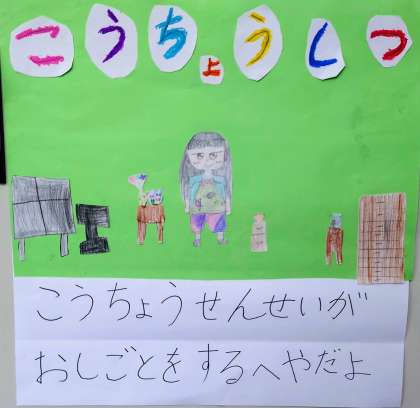 こうちょうしつ
こうちょうせんせいが
おしごとをするへやだよ